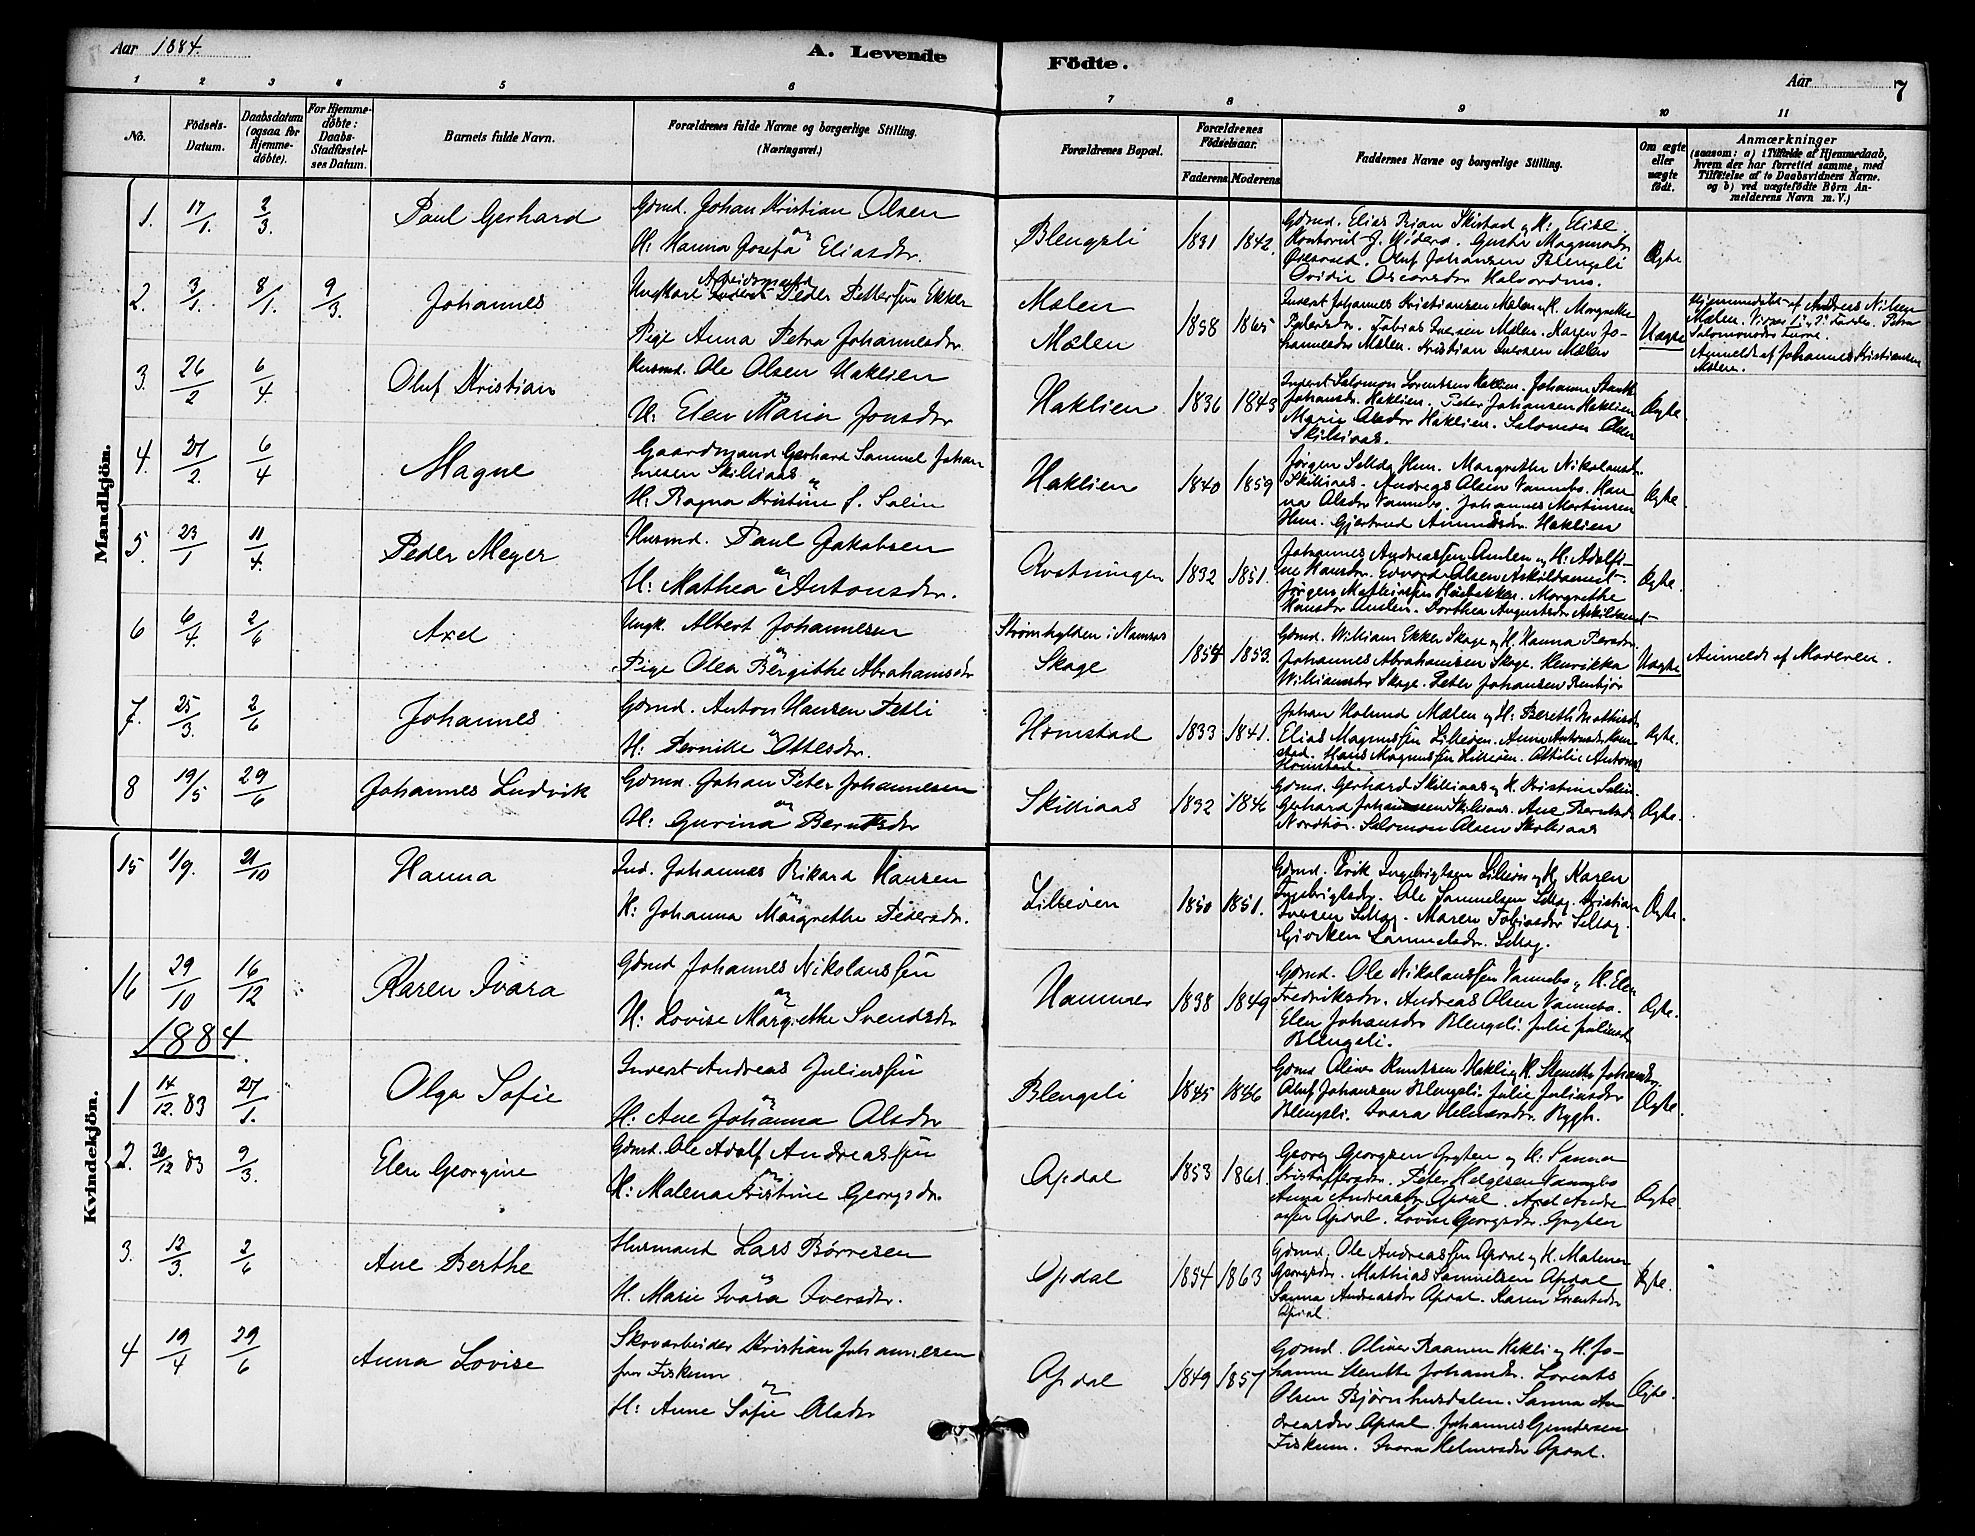 Aar 1884.
A. Levende Födte.
Aar
7
1 2 3 4 5 6 7 8 9 10 11
No.
Födsels-Datum.
Daabsdatum (ogsaa for Hjemme-döbte).
For Hjemme-döbte: Daabs-Stadfæstel-ses Datum.
Barnets fulde Navn.
Forældrenes fulde Navne og borgerlige Stilling. (Næringsvei.)
Forældrenes Bopæl.
Forældrenes Födselsaar.
Faderens Moderens
Faddernes Navne og borgerlige Stilling.
Om ægte eller uægte födt.
Anmærkninger
(saasom: a) i Tilfælde af Hjemmedaab, hvem der har forrettet samme, med Tilföielse af to Daabsvidners Navne. og b) ved uægtefödte Börn An-melderens Navn m. V.)
Mandkjön.
1. 17/1. 2/3. Paul Gerhard
Gdmd. Johan Kristian Olsen
og
H: Hanna Josefa Eliasdr.
Blengsli 1831 1842.
Gdmd. Elias Brian Skistad og H: Elise
Oluf Johansen Blengsli
Ægte
2. 3/1. 8/1. 9/3. Johannes
Arbeidsmand
Ungkarl Peder Pettersen Ekker
Pige Anna Petra Johannesdr.
Mælen
Mælen
1858 1865
Inderst Johannes Kristiansen Mælen og H. Margrethe
Pedersdr. Tobias Iversen Mælen. Karen Jo-
hannesdr Mælen. Kristian Iversen Mælen
Uægte
Hjemmedøbt af Andreas Nilsen
Mælen.
Anmeldt af Johannes Kristiansen
Mælen.
3. 26/2 6/4. Oluf Kristian
Husmd. Ole Olsen Haklien
H: Elen Maria Jonsdr
Haklien 1836 1843
Inderst Salomon Lorentsen Haklien. Johanna
Johansdr. Haklien. Peter Johansen Haklien
Marie Olsdr Haklien. Salomon Olsen
Skilliaas.
Ægte.
4. 27/2. 6/4 Magne
Gaardmand Gerhard Samuel Johan
nesen Skilliaas
og
H: Ragna Kristine f. Salin
Haklien 1840 1859
Jørgen Selldg Hem. Margrethe Nikolausdr.
Skilliaas. Andreas Olsen Vannebo. Han
na Olsdr Vannebo. Johannes Martinsen
Hem. Gjertrud Haklien
Ægte.
5. 23/1 11/4. Peder Meyer
Husmd. Paul Jakobsen
og
H: Mathea Antonsdr.
1832 1851.
Johannes Andreassen Amlen og H: Adolfi-
ne Hansdr. Edvard Olsen
Hansdr Amlen. Dorthea Augustsdr
Ægte.
6 6/4 2/6 Axel
Ungk. Albert Johannesen
og
Pige Olea Bergithe Abrahamsdr
Strømhylden i Namsos
Skage
1854 1853.
Gdmd. William Ekker Skage og H. Hanna Persdr.
Johannes Abrahamsen Skage. Henrikka
Williamsdr Skage. Peter Johansen
Uægte
Anmeldt af Moderen.
7. 25/3. 2/6 Johannes
Gdmd. Anton Hansen Fetli
og
H: Pernille Ottesdr.
Homstad 1833 1841.
Johan Mælen og H: Bereth Mathisdr
Elias Magnussen Lilleøen. Anne Antonsdr Hom
stad. Hans Magnussen Lilleøen. Antonsdr
Homstad.
Ægte.
8 19/5 29/6 Johannes Ludvik
Gdmd. Johan Peter Johannesen
og
H: Gurina Berntsdr
Skilliaas 1832 1846
Gdmd. Gerhard Skilliaas og H. Kristine Salin
Gerhard Johannesen Skilliaas. Ane Berntsdr
Salomon Olsen Skilliaas
Ægte.
Kvindekjön.
15 1/9. 21/10 Hanna
Ind. Johannes Rikard Hansen
og
H: Johanna Margrethe Pedersdr.
Lilleøen 1850 1851.
Gdmd. Erik Ingebrigtsen Lilleøen og H. Karen
Ingebrigtsdr. Ole Samuelsen Selbag. Kristian
Iversen Selbag. Maren Tobiasdr Selbag.
Samuelsdr. Selbag.
Ægte.
16 29/10 16/12 Karen Ivara
Gdmd Johannes Nikolaussen
og
H: Lovise Margrethe Svendsdr
Hammer 1838 1849
Gdmd. Ole Nikolaussen Vannebo og H. Elen
Fredriksdr. Andreas Olsen Vannebo.
Elen Johansdr Blengsli. Julie Juliusdr
Blengsli.
Ægte.
1884.
1 14/12. 83 27/1. Olga Sofie
Inderst Andreas Juliussen
og
H: Ane Johanna Olsdr
Blengsli 1845 1846
Gdmd Oliver Knutsen Hakli og H. Stenette Johansdr.
Oluf Johansen Blengsli. Julie Juliusdr
Blengsli. Ivara Helmersdr. Bygh.
Ægte.
2. 30/12 83 9/3. Elen Georgine
Gdmd. Ole Adolf Andreassen
og
H: Malena Kristine Georgsdr.
Opdal 1853 1861.
Georg Georgsen Gryten og H. Sanna
Kristoffersdr. Peter Helgesen Vannebo
Anna Andreasdr Opdal. Axel Andre
assen Opdal. Lovise Georgsdr. Gryten
Ægte.
3. 12/3. 2/6 Ane Berthe
Husmand Lars Børresen
og
H. Marie Ivara Iversdr.
Opdal 1854 1863
Gdmd. Ole Andreassen Opdal og H. Malena
Georgsdr. Mathias Samuelsen Opdal
Sanna Andreasdr Opdal. Karen Lorentsdr
Opdal.
Ægte.
4 19/4 29/6 Anna Lovise
Skovarbeider Kristian Johannesen
fra Fiskum
og
H: Anne Sofie Olsdr
Opdal 1849 1857
Gdmd. Oliver Hakli og H. Jo-
hanna Stenette Johansdr. Lorents
Olsen Bjørnhusdalen. Sanna An
dreasdr Opdal. Johannes Gundersen
Fiskum. Ivara Helmersdr Opdal.
Ægte.